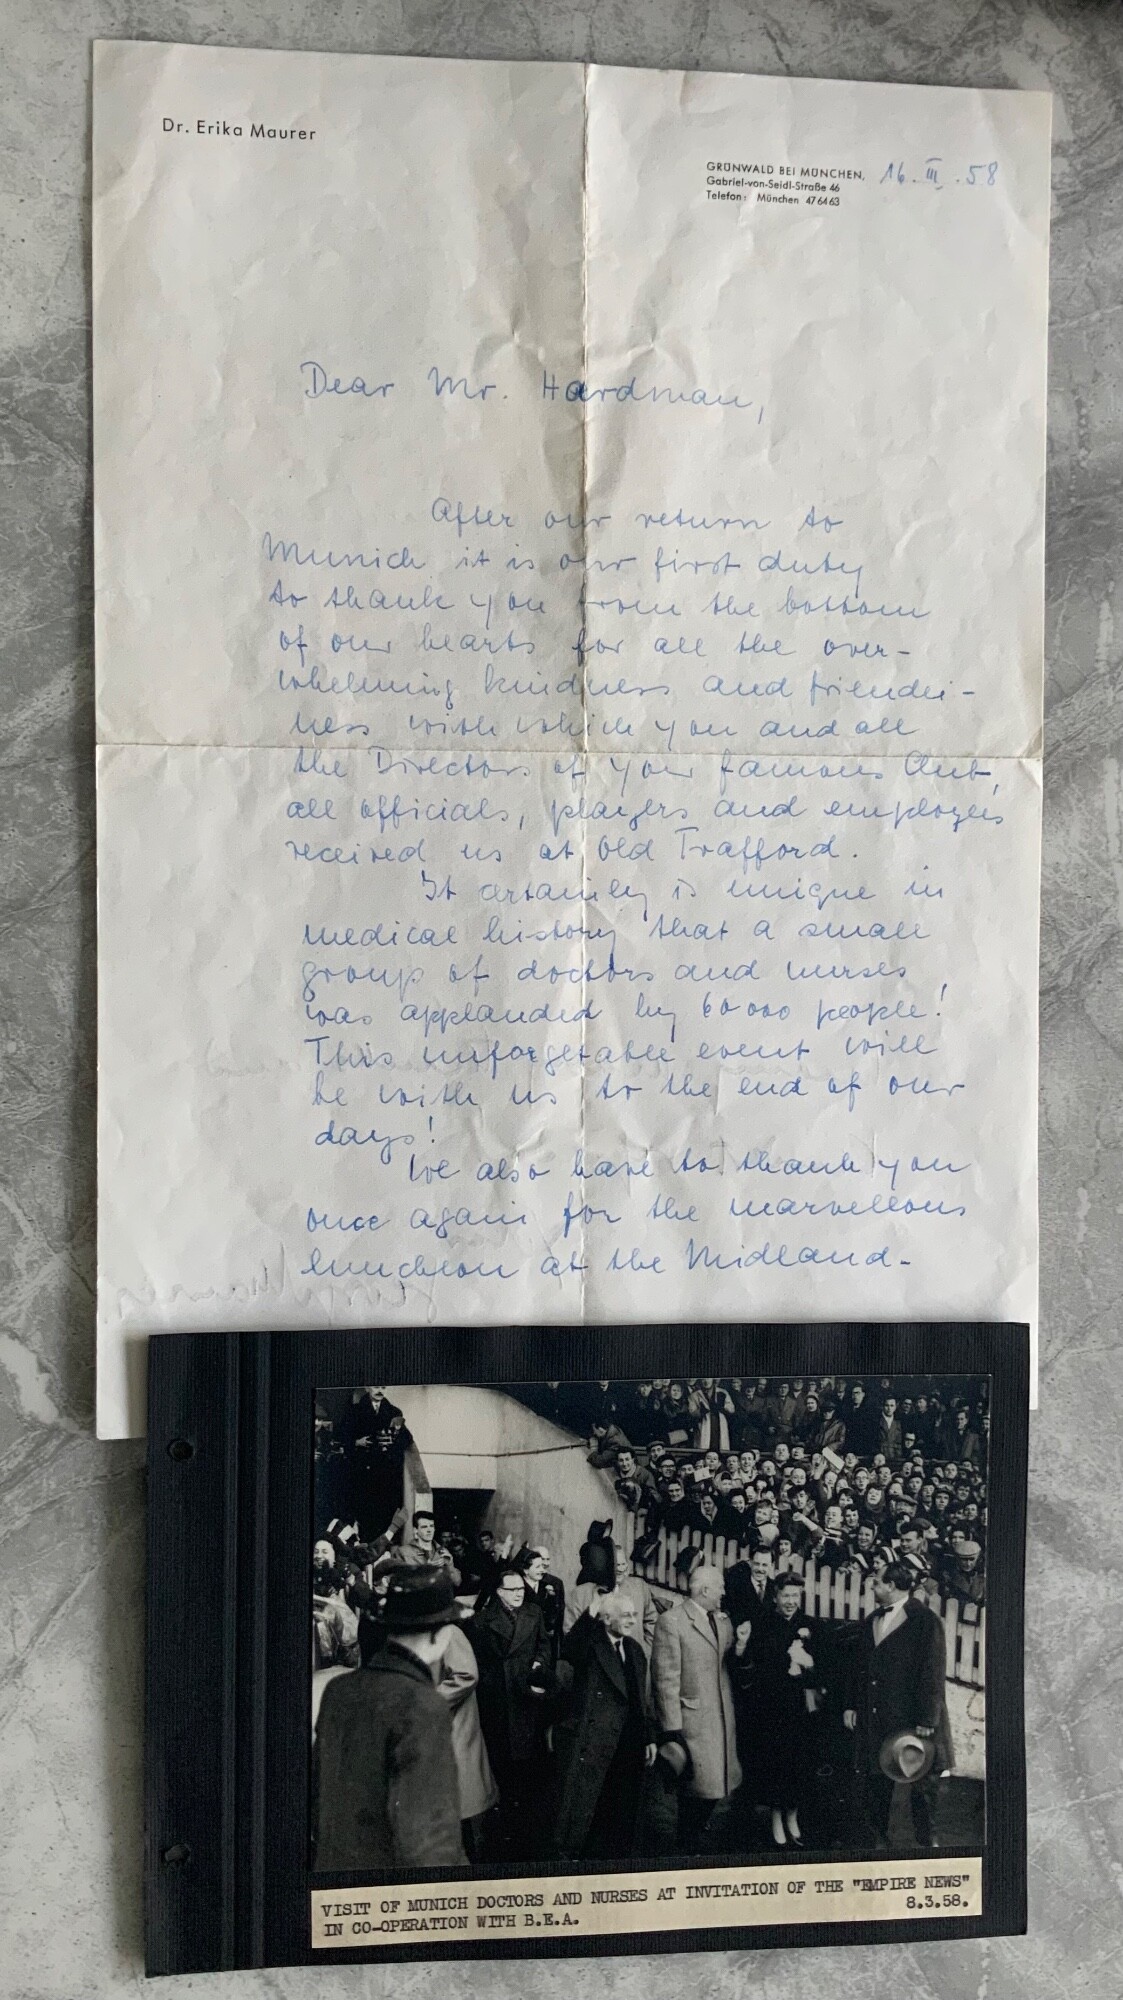 Dr. Erika Maurer
GRÜNWALD BEI MÜNCHEN, 16. III. 58
Gabriel-von-Seidl-Straße 46
Telefon: München 47 64 63
Dear Mr. Hardman,
After our return to
Munich it is our first duty
to thank you from the bottom
of our hearts for all the over-
whelming kindness and friendli-
ness with which you and all
the Directors of your famous Club,
all officials, players and employees
received us at Old Trafford.
It certainly is unique in
medical history that a small
group of doctors and nurses
was applauded by 60 000 people!
This unforgetable event will
be with us to the end of our
days!
We also have to thank you
once again for the marvellous
luncheon at the Midland-
VISIT OF MUNICH DOCTORS AND NURSES AT INVITATION OF THE "EMPIRE NEWS"
IN CO-OPERATION WITH B.E.A. 8.3.58.